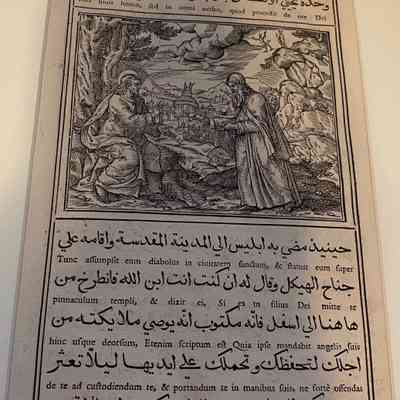 وحده يحيي
vivit homo, sed in omni verbo, quod procedit de ore Dei
حينيذ مضي به ابليس الي المدينة المقدسة واقامه علي
Tunc assumpsit eum diabolus in civitatem sanctam, & statuit eum super
جناح الهيكل وقال له ان كنت انت ابن الله فانطرح من
pinnaculum templi, & dixit ei, Si es tu filius Dei mitte te
هاهنا الي اسفل فانّه مكتوب انّه يوصي ملايكته من
hinc usque deorsum, Etenim scriptum est Quia ipse mandabit angelis suis
اجلك لتحفظك وتحملك علي ايديها ليلا تعثر
de te ad custodiendum te, & portandum te in manibus suis, ne fortè offendas